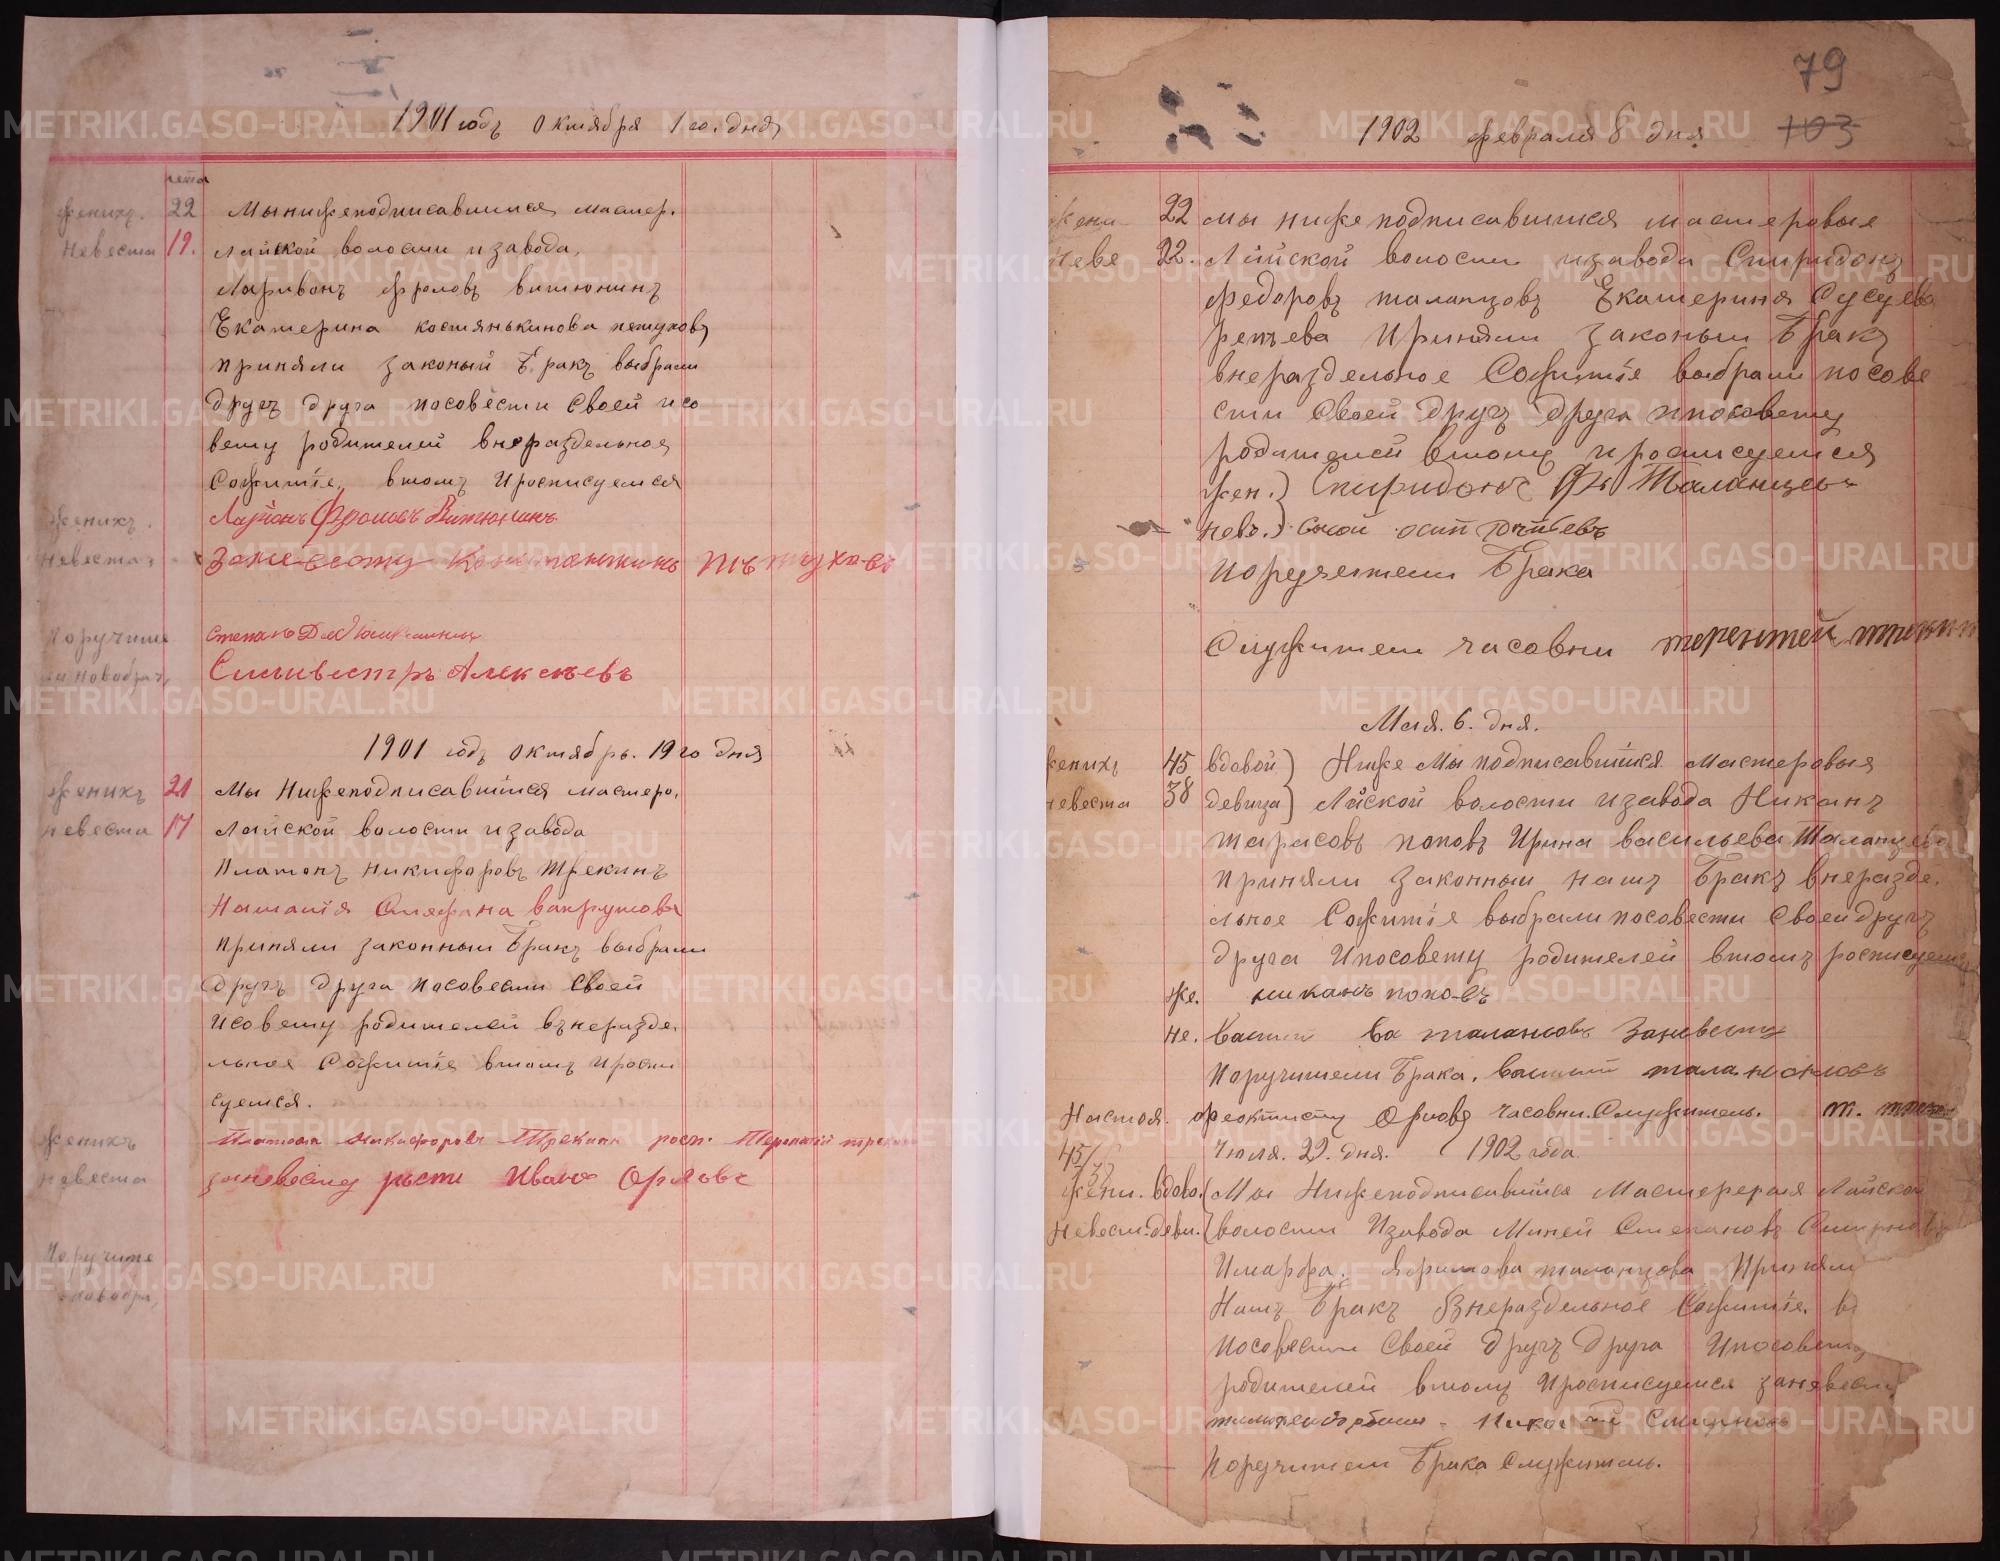 1901 годъ октября 1 го. дня
лета
жених. 22 Мы нижеподписавшиеся мастер.
невеста 19. Лайской волости и завода,
Ларивонъ Фроловъ витюнинъ
Екатерина костянькинова петухова
приняли законый Бракъ выбрали
другъ друга посовести своей исо
вету родителей внераздельное
Сожитiе, втомъ Иросписуемся
женихъ. Ларiонъ Фроловъ Витюнинъ
невеста Заневесту Константинъ Петухо-въ
Поручите Степанъ
ли новобрач, Сильвестръ Алексеевъ
1901 годъ октябрь. 19 го дня
женихъ 21 Мы Нижеподписавшiися мастеро,
невеста 17 Лайской волости и завода
Платонъ Никифоровъ Трекинъ
Наталiя вахрушова
приняли законныи Бракъ выбрали
другъ друга посовести своей
Исовету родителей вънеразде,
льное Сожитiе втомъ Ироспи
суемся.
женихъ Платонъ Никифоровъ Трекинъ росп. Терентiй трекин
невеста заневесту Иванъ Орловъ
Поручите
новобра,
79
103
1902 февраля 8 дня
жени 22 мы ниже подписавшиися мастеровые
неве 22. Лайской волости изавода Спиридонъ
Федоровъ таланцовъ Екатерина
Приняли законыи Бракъ
внераздельное Сожитiе выбрали посове
сти своей другъ друга ипосовету
родителей втому иросписуемся
жен.) Спиридонъ Таланцовъ
нев.) осип
поручетели Брака
Служители часовни терентей
Мая. 6. дня.
жених 45 вдовой) Ниже Мы подписавшiися мастеровыя
невеста 38 девица) Лйской волости изавода Никанъ
тарасовъ поповъ Ирина васильева Таланцева
приняли законныи нашъ Бракъ внеразде.
льное Сожитiе выбрали посовести своей другъ
друга Ипосовету родителей втомъ росписуемся
же. никанъ попо-въ
не. таланцовъ заневесту
Поручители Брака.
Настоя. Феоктисту Орлову часовни. Служитель. т.
45/ Июля. 29. дня. 1902 года.
жени. вдово. (Мы Нижеподписавшiися Лайской
невест. деви. (волости Изавода Миней Степановъ
Имарфа. таланцова Приняли
Нашъ Бракъ Внераздельное Сожитiе. в
посовести своей другъ друга Ипосовету
родителей втому Иросписуемся заневест
Поручители Брака служитель.